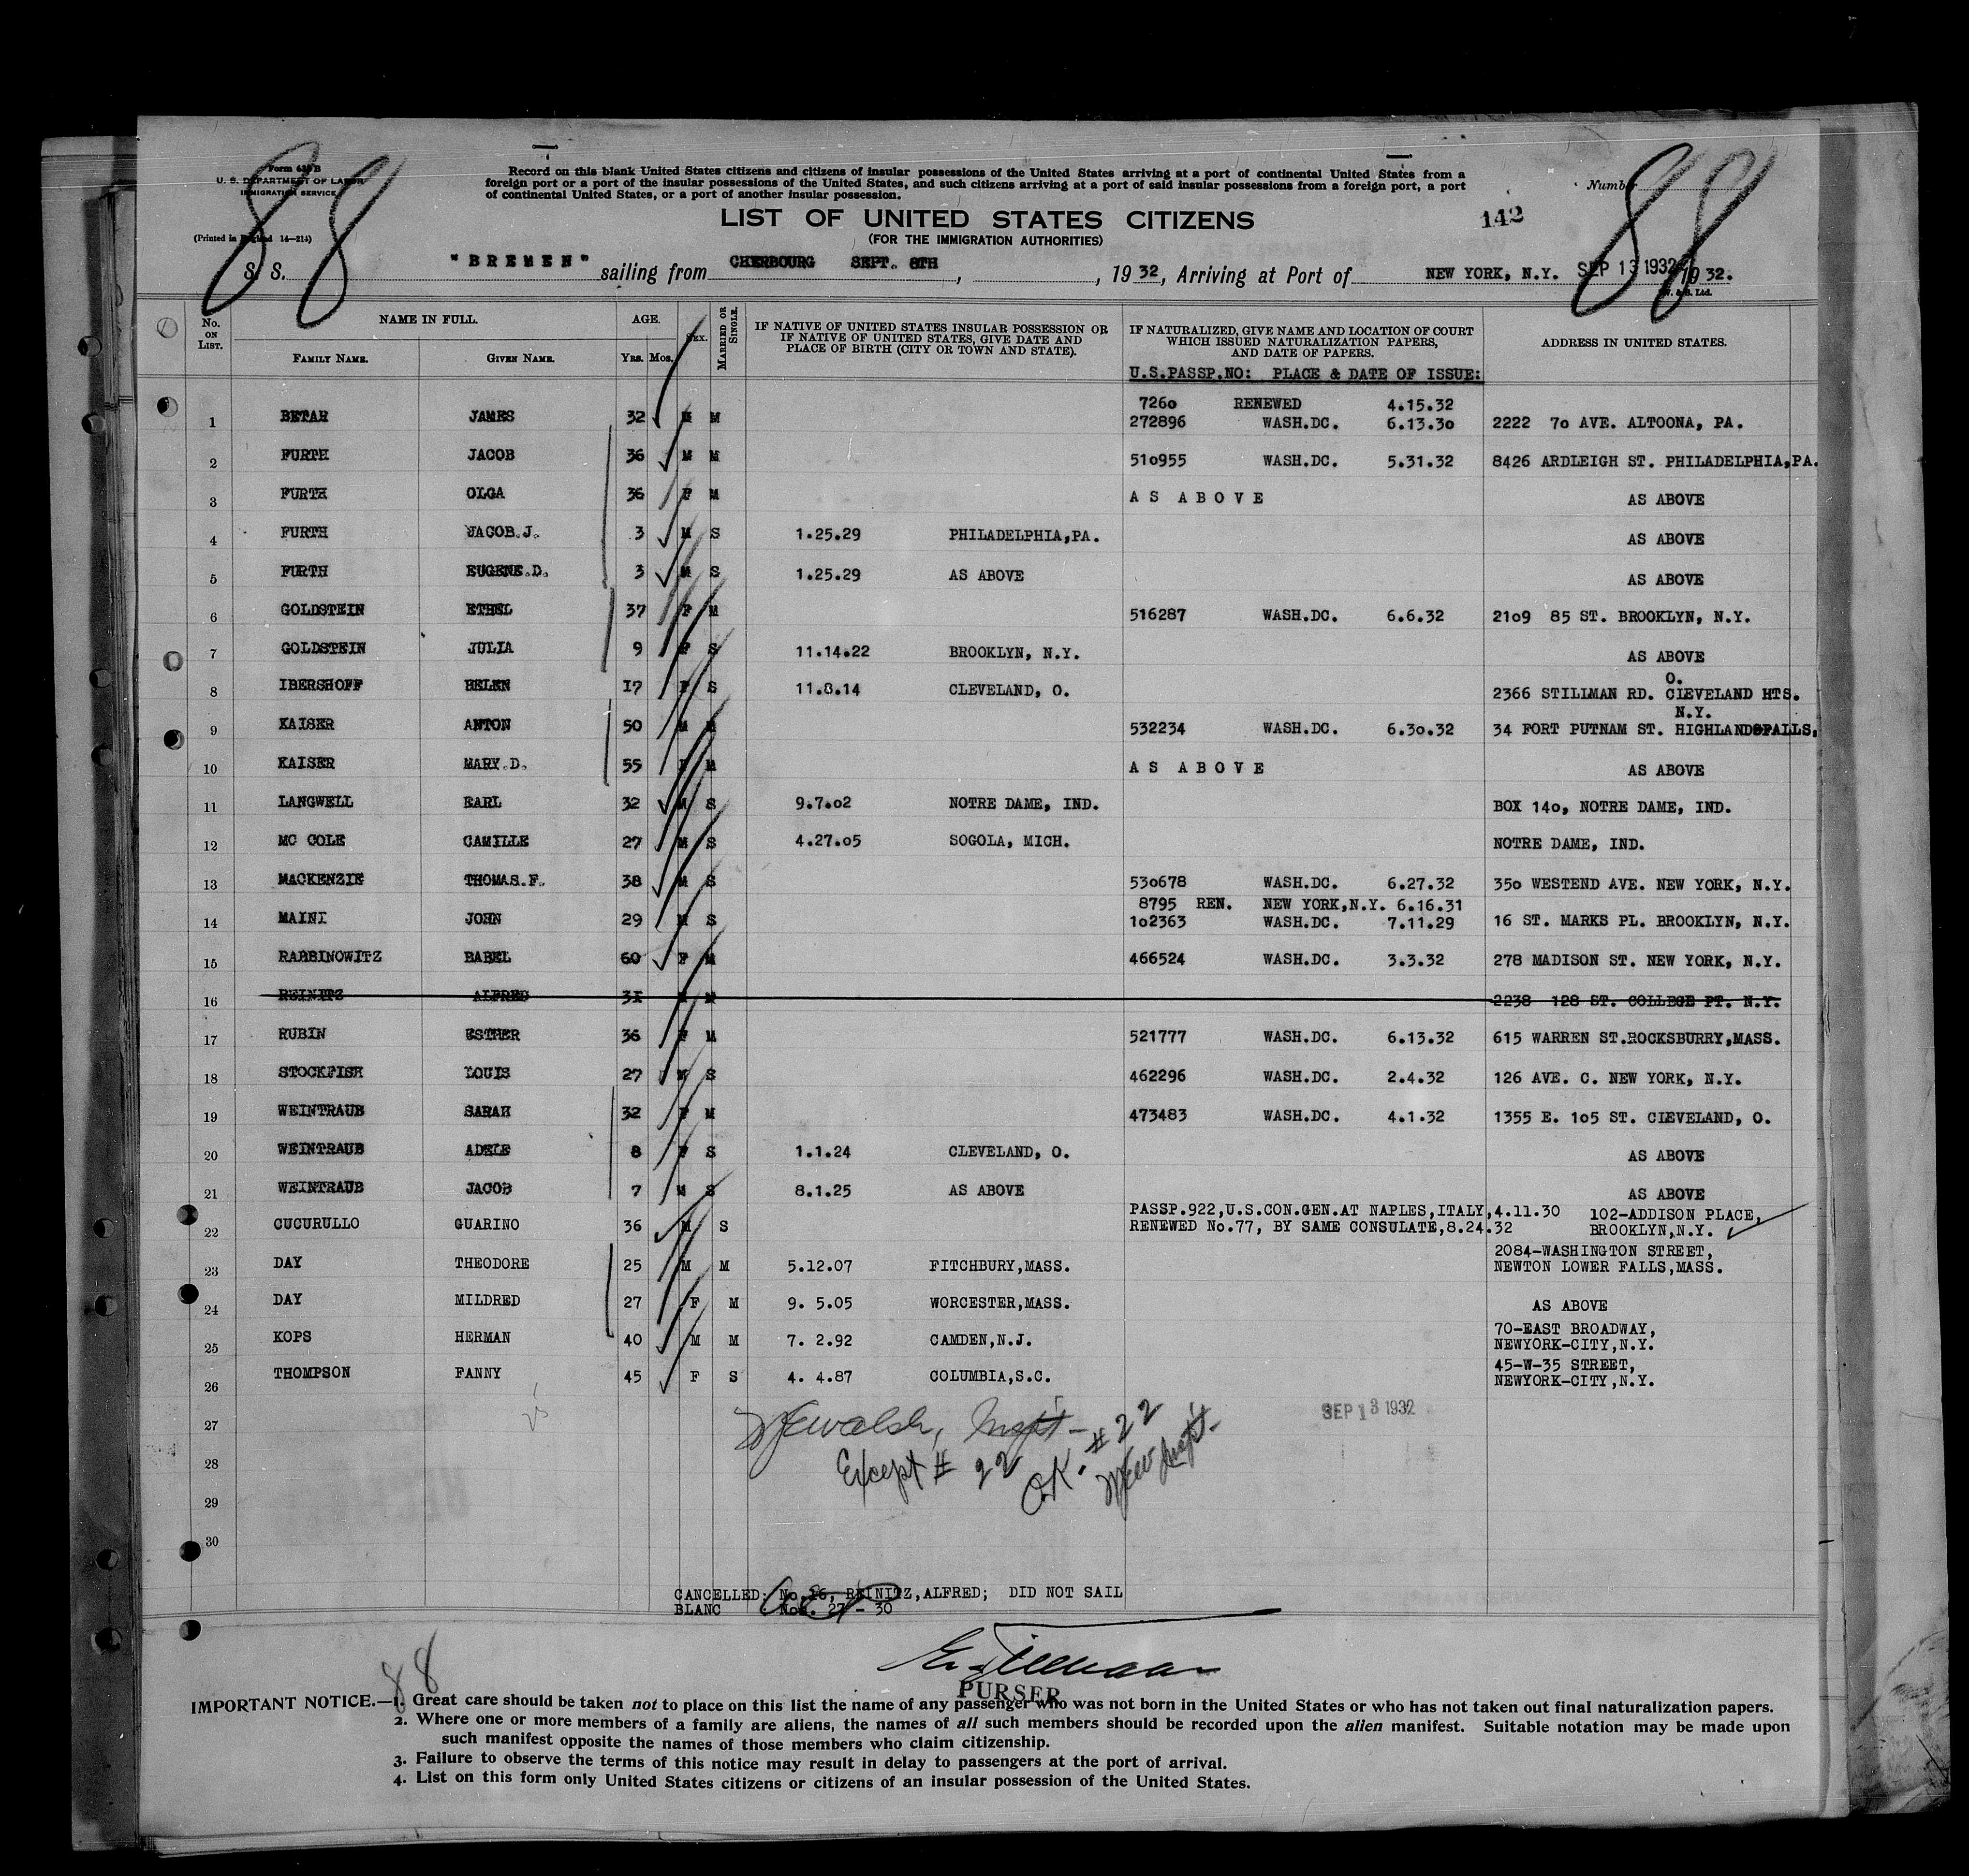 88
88
Form 630 B
U. S. DEPARTMENT OF LABOR
IMMIGRATION SERVICE
(Printed in England 14—214)
Record on this blank United States citizens and citizens of insular possessions of the United States arriving at a port of continental United States from a
foreign port or a port of the insular possessions of the United States, and such citizens arriving at a port of said insular possessions from a foreign port, a port
of continental United States, or a port of another insular possession.
Number
LIST OF UNITED STATES CITIZENS
142
(FOR THE IMMIGRATION AUTHORITIES)
S. S. "BREMEN" sailing from CHERBOURG SEPT. 8TH, , 1932, Arriving at Port of NEW YORK, N.Y. SEP 13 1932 1932.
No. ON LIST. NAME IN FULL. AGE. SEX. MARRIED OR SINGLE. IF NATIVE OF UNITED STATES INSULAR POSSESSION OR IF NATIVE OF UNITED STATES, GIVE DATE AND PLACE OF BIRTH (CITY OR TOWN AND STATE). IF NATURALIZED, GIVE NAME AND LOCATION OF COURT WHICH ISSUED NATURALIZATION PAPERS, AND DATE OF PAPERS. ADDRESS IN UNITED STATES.
FAMILY NAME. GIVEN NAME. YRS. MOS.
U.S.PASSP.NO: PLACE & DATE OF ISSUE:
7260 RENEWED 4.15.32
1 BETAR JAMES 32 M M 272896 WASH.DC. 6.13.30 2222 70 AVE. ALTOONA, PA.
2 FURTH JACOB 36 M M 510955 WASH.DC. 5.31.32 8426 ARDLEIGH ST. PHILADELPHIA,PA.
3 FURTH OLGA 36 F M AS ABOVE AS ABOVE
4 FURTH JACOB.J. 3 M S 1.25.29 PHILADELPHIA,PA. AS ABOVE
5 FURTH EUGENE.D. 3 M S 1.25.29 AS ABOVE AS ABOVE
6 GOLDSTEIN ETHEL 37 F M 516287 WASH.DC. 6.6.32 2109 85 ST. BROOKLYN, N.Y.
7 GOLDSTEIN JULIA 9 F S 11.14.22 BROOKLYN, N.Y. AS ABOVE
O.
8 IBERSHOFF HELEN 17 F S 11.8.14 CLEVELAND, O. 2366 STILLMAN RD. CLEVELAND HTS.
N.Y.
9 KAISER ANTON 50 M M 532234 WASH.DC. 6.30.32 34 FORT PUTNAM ST. HIGHLANDSFALLS,
10 KAISER MARY.D. 55 F M AS ABOVE AS ABOVE
11 LANGWELL EARL 32 M S 9.7.02 NOTRE DAME, IND. BOX 140, NOTRE DAME, IND.
12 MC COLE CAMILLE 27 M S 4.27.05 SOGOLA, MICH. NOTRE DAME, IND.
13 MACKENZIE THOMAS.F. 38 M S 530678 WASH.DC. 6.27.32 350 WESTEND AVE. NEW YORK, N.Y.
8795 REN. NEW YORK,N.Y. 6.16.31
14 MAINI JOHN 29 M S 102363 WASH.DC. 7.11.29 16 ST. MARKS PL. BROOKLYN, N.Y.
15 RABBINOWITZ BABEL 60 F M 466524 WASH.DC. 3.3.32 278 MADISON ST. NEW YORK, N.Y.
16 REINITZ ALFRED 31 M M 2238 128 ST. COLLEGE PT. N.Y.
17 RUBIN ESTHER 36 F M 521777 WASH.DC. 6.13.32 615 WARREN ST.ROCKSBURRY,MASS.
18 STOCKFISH LOUIS 27 M S 462296 WASH.DC. 2.4.32 126 AVE. C. NEW YORK, N.Y.
19 WEINTRAUB SARAH 32 F M 473483 WASH.DC. 4.1.32 1355 E. 105 ST. CLEVELAND, O.
20 WEINTRAUB ADELE 8 F S 1.1.24 CLEVELAND, O. AS ABOVE
21 WEINTRAUB JACOB 7 M S 8.1.25 AS ABOVE AS ABOVE
PASSP.922,U.S.CON.GEN.AT NAPLES,ITALY,4.11.30 102-ADDISON PLACE,
22 CUCURULLO GUARINO 36 M S RENEWED No.77, BY SAME CONSULATE,8.24.32 BROOKLYN,N.Y.
2084-WASHINGTON STREET,
23 DAY THEODORE 25 M M 5.12.07 FITCHBURY,MASS. NEWTON LOWER FALLS,MASS.
24 DAY MILDRED 27 F M 9. 5.05 WORCESTER,MASS. AS ABOVE
70-EAST BROADWAY,
25 KOPS HERMAN 40 M M 7. 2.92 CAMDEN,N.J. NEWYORK-CITY,N.Y.
45-W-35 STREET,
26 THOMPSON FANNY 45 F S 4. 4.87 COLUMBIA,S.C. NEWYORK-CITY,N.Y.
27 SEP 13 1932
28 Except # 22 O.K. # 22
29
30
CANCELLED: No.16, REINITZ,ALFRED; DID NOT SAIL
BLANC Nos. 27 - 30
PURSER
88
IMPORTANT NOTICE.—1. Great care should be taken not to place on this list the name of any passenger who was not born in the United States or who has not taken out final naturalization papers.
2. Where one or more members of a family are aliens, the names of all such members should be recorded upon the alien manifest. Suitable notation may be made upon
such manifest opposite the names of those members who claim citizenship.
3. Failure to observe the terms of this notice may result in delay to passengers at the port of arrival.
4. List on this form only United States citizens or citizens of an insular possession of the United States.